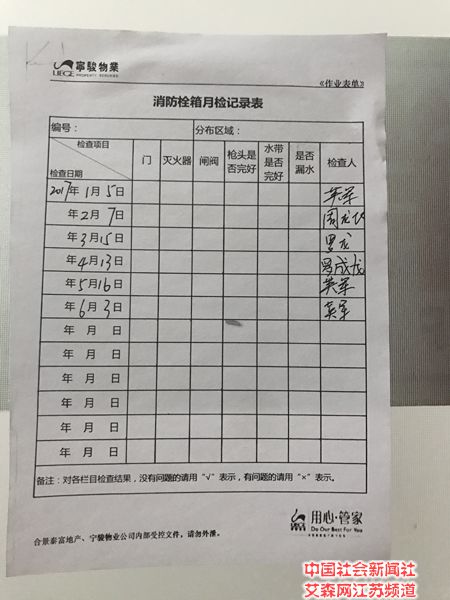 寧駿物業
LIEGE PROPERTY SERVICES
《作业表单》
消防栓箱月检记录表
编号： 分布区域：
检查项目 检查日期 门 灭火器 闸阀 枪头是否完好 水带是否完好 是否漏水 检查人
2017年1月5日 英军
年2月7日 周龙
年3月15日 罗龙
年4月13日 罗成龙
年5月16日 英军
年6月3日 英军
年 月 日
年 月 日
年 月 日
年 月 日
年 月 日
年 月 日
备注：对各栏目检查结果，没有问题的请用“√”表示，有问题的请用“×”表示。
用心·管家
Do Our Best For You
合景泰富地产、宁骏物业公司内部受控文件，请勿外泄。
中国社会新闻社
艾森网江苏频道